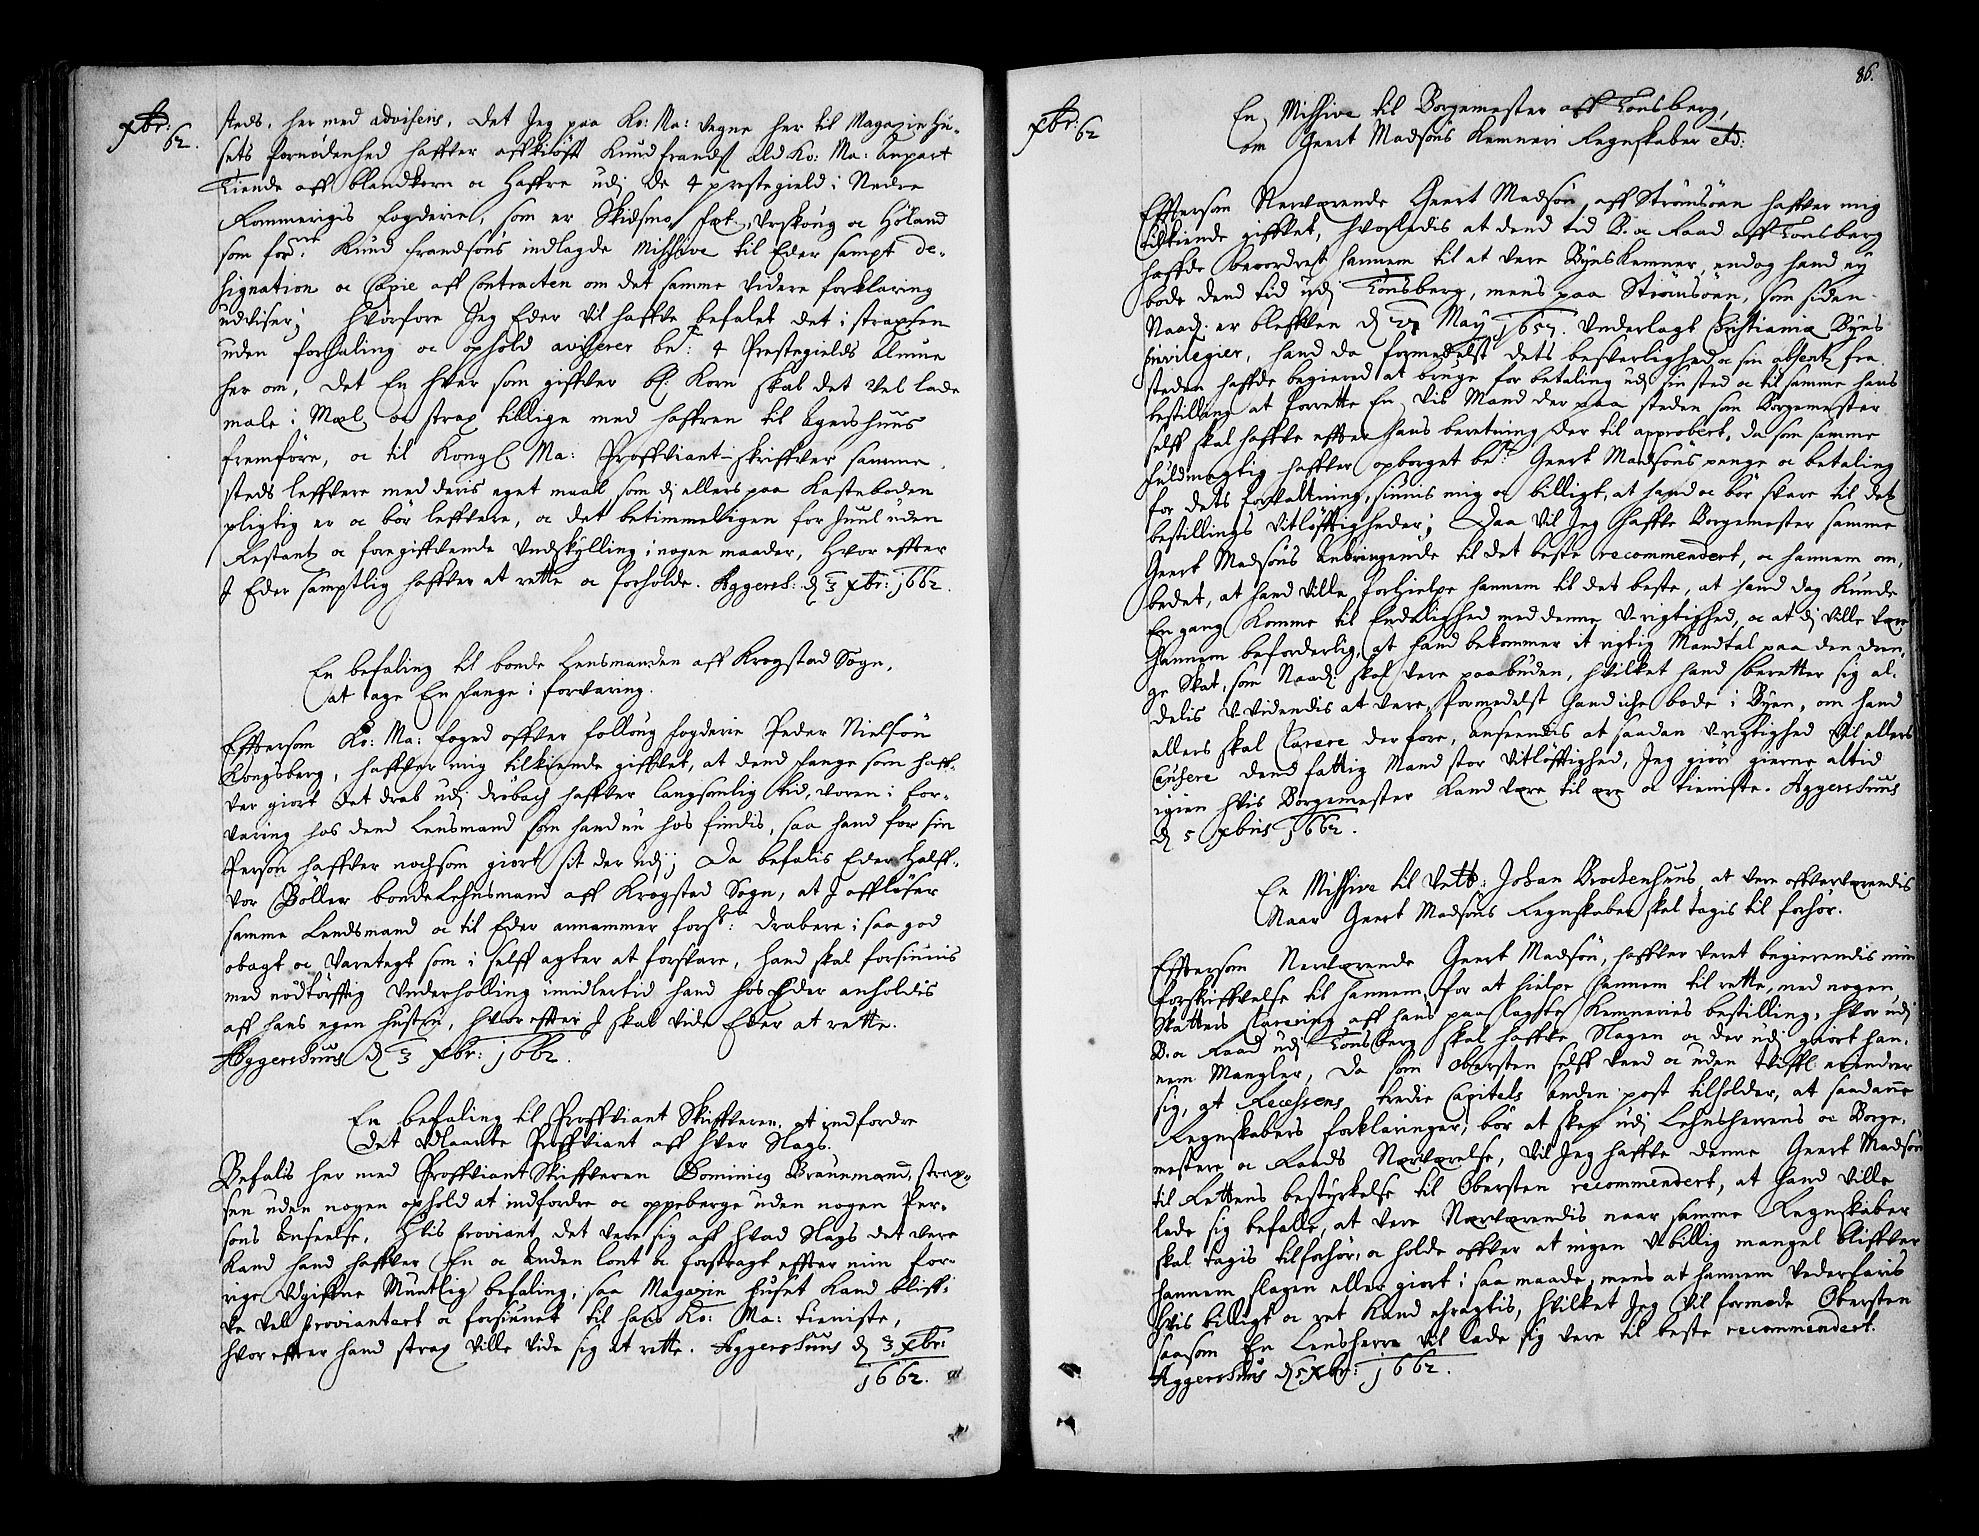 xbr: 62.
steds, her med adviseris, Det Jeg paa Ko: Ma: vegne her til Magazin Hu-
sets fornødenhed haffver affkiøfft Knud Frands. All Ko: Ma: Anpart
Tiende aff blandkorn oc Haffre udj de 4 prestegield i Nedre
Rommerigis fogderie, som er Skidsmo, Fet, Urskoug oc Høland
som forne: Knud Frandsøns indlagde Missive til Eder sampt de-
signation oc Copie aff Contracten om det samme videre forklaring
udviser; Hvorfore Jeg Eder vil haffve befalet det i straxsen
uden forhaling oc ophold aviserer bete: 4 Prestegields Almue
her om, Det En hver som giffver bl: Korn skal det vel lade
male i Meel oc strax tillige med haffren til Agershuus
fremføre, oc til Kongl Ma: Proffviant-skriffver samme-
steds leffvere med deris eget maal som dj ellers paa Kasteboden
pligtig er oc bør leffvere, oc det betimmeligen for Juul uden
Restantz oc foregiffvende Undskylling i nogen maader, Hvor effter
I Eder samptlig haffver at rette oc forholde. Aggersh: d 3 xbr: 1662.
En befaling til bonde Lensmanden aff Krogstad Sogn,
at tage En fange i forvaring.
Efftersom Ko: Ma: foged offver Folloug fogderie Peder Nielsøn
Kongsberg, haffver mig tilkiende giffvet, at dend fange som haff-
ver giort det drab udj Drøbach haffver langsomlig tid, voren i For-
varing hos dend Lensmand som hand nu hos findis, saa hand for sin
Person haffver nochsom giort sit der udj; Da befalis Eder Half-
vor Bøller bonde Lehnsmand aff Krogstad Sogn, at I affløser
samme Lendsmand oc til Eder annammer forsk: Drabere i saa god
obagt oc Varetegt som i selff agter at forsvare, hand skal forsiunis
med nødtørfftig Underholling imidlertid hand hos Eder anholdis
aff hans egen Hustru, hvor effter I skal vide Eder at rette.
Aggershuus d 3 xbr: 1662.
En befaling til Proffviant Skriffveren, at indfordre
Det Udlaante Proffviant aff hver Slags.
Befalis her med ProffviantSkriffveren Dominicus Braunmand, strax-
sen uden nogen ophold at indfordre oc oppeberge uden nogen Per-
sons Anseelse, Hvis proviant det vere sig aff hvad Slags det vere
Kand hand haffver En oc Anden lont oc forstragt effter min for-
rige Udgiffne Muntlig befaling, saa Magazin Huset Kand bliff-
ve vel proviantert oc forsiunet til hans Ko: Ma: tieniste,
hvor effter hand strax ville vide sig at rette. Aggershuus d 3 xbr:
1662.
86.
xbr: 62
En Missive til Borgemester aff Tonsberg,
om Geert Madsøns Kemneri Regnskaber etc:
Efftersom Nerværende Geert Madsøn aff Strømsøen haffver mig
tilkiende giffvet, hvorledis at dend tid B: oc Raad aff Tonsberg
haffde beordret hannem til at vere Byens Kemner, endog hand ey
bode dend tid udj Tonsberg, mens paa Strømsøen, som siden
Naad: er bleffven d 27 May 1657. Underlagt Christiania Byes
privilegier, hand da formedelst dets besverlighed oc sin absentz fra
steden haffde begiered at bruge for betaling udj sin sted oc til samme hans
bestilling at forrette En vis Mand der paa steden som Borgemester
selff skal haffve effter hans beretning der til approbert, da som samme
fuldmegtig haffver opborget bete: Geert Madsøns penge oc betaling
for dets forvaltning, siunis mig oc billigt, at hand oc bør svare til dets
bestillings Vitløfftigheder; Daa vil Jeg haffve Borgemester samme
Geert Madsøns Anbringende til det beste recommendert, oc hannem om-
bedet, at hand ville forhielpe hannem til det beste, at hand dog Kunde
En gang Komme til Endelighed med denne Urigtighed, oc at dj ville være
hannem beforderlig, at hand bekommer it rigtig Mandtal paa den dren-
ge Skat, som Naad: skal vere paabuden, hvilket hand beretter sig al-
delis Uvidendis at vere, formedelst hand iche bode i Byen, om hand
ellers skal Clarere derfore, Anseendis at saadan Urigtighed vil ellers
Causere dend fattig Mand stor Vitløfftighed, Jeg giør gierne altid
igien hvis Borgemester Kand vere til ære oc tieniste. Aggershuus
d 5 xbris 1662.
En Missive til Velb: Johan Brockenhuus at vere offververendis
Naar Geert Madsøns Regnskaber skal tagis til forhør.
Efftersom Nerværende Geert Madsøn, haffver veret begierendis min
forskriffvelse til hannem, for at hielpe hannem til rette, med nogen
Skatters Clarering aff hans paalagte Kemneries bestilling, hvor udj
B: oc Raad udj Tonsberg skal haffve Slagen oc der udj giort han-
nem Mangler, Da som Obersten selff veed oc uden tviffl erindrer
sig, at Recessens tredie Capitels Anden post tilholder, at saadanne
Regnskabers forklaringer, bør at skee udj Lehnsherrens oc Borge-
mestere oc Raads Nærværelse, vil Jeg haffve denne Geert Madsøn
til Rettens bestyrkelse til Obersten recommendert, at hand ville
lade sig befalle, at vere Nærværendis naar samme Regnskaber
skal tagis til forhør, oc holde offver at ingen Ubillig mangel bliffver
hannem slagen eller giort i saa maade, mens at hannem vederfaris
hvis billigt oc ret Kand eragtis, hvilket Jeg vil formode Obersten
saasom En Lensherre vil lade sig vere til beste recommendert.
Aggershuus d 5 xbr: 1662.